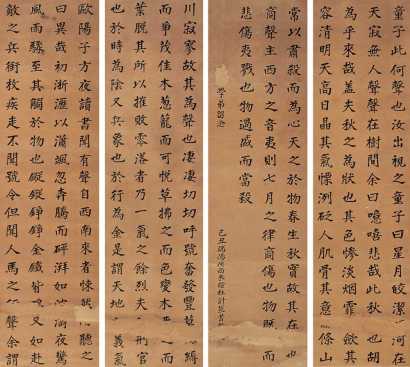 歐陽子方夜讀書聞有聲自西南來者悚聽之
曰異哉初淅瀝以瀟颯忽奔騰而砰湃如波夜驚
風雨驟至其觸於物也鏦鏦錚錚金鐵又如赴
敵之兵銜枚疾走不聞號令但聞人馬之聲余謂
童子此何聲也汝出視之童子曰星潔河在
天寂無人聲聲在樹間余曰噫嘻悲哉此秋也胡
為乎來哉蓋夫秋之為狀也其色慘淡烟霏斂其
容清明天高日晶其氣慄冽砭人肌骨其意條山
川寂寥故其為聲也淒淒切切呼號奮發豐縟
而爭茂佳木葱蘢而可悅草拂之而色變木之而
葉脫其所以摧敗零落者乃一氣之餘烈夫刑官
也於時為陰又兵象也於行為金是謂天地義氣
常以肅殺而為心天之於物春生秋實故其在也
商聲主西方之音夷則七月之律商傷也物既而
悲傷夷戮也物過盛而當殺
己丑端陽